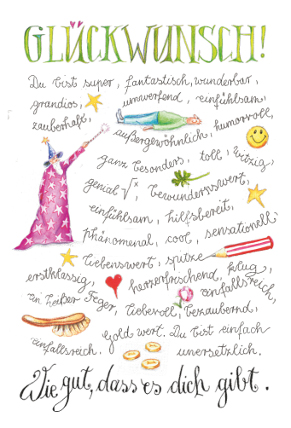 GLÜCKWUNSCH!
Du bist super, fantastisch, wunderbar,
grandios, umwerfend, einfühlsam,
zauberhaft, außergewöhnlich, humorvoll,
ganz besonders, toll, witzig,
genial, bewundernswert,
einfühlsam, hilfsbereit,
phänomenal, cool, sensationell,
liebenswert, spitze,
erstklassig, herzerfrischend, klug,
ein heißer Feger, liebevoll, bezaubernd, einfallsreich,
Gold wert. Du bist einfach
einfallsreich. unersetzlich.
Wie gut, dass es dich gibt.